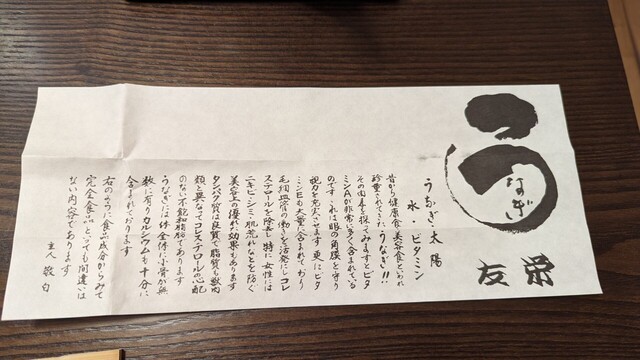 うなぎ
栄
友
うなぎ・太陽
水・ビタミン
昔から健康食・美容食といわれ
珍重されてきたうなぎ!!
その内容を探ってみますとビタ
ミンAが非常に多く含まれている
のです これは眼の角膜を守り
視力を充実させます 更にビタ
ミンEも大量に含まれており
毛細血管の働きを活発にしコレ
ステロールを除去し 特に女性には
ニキビ・シミ・肌荒れなどを防ぐ
美容上の優れた効果もあります
タンパク質は良質で脂質も獣肉
類と異なってコレステロールの心配
のない不飽和脂肪であります
うなぎには体全体に小骨が無
数に有りカルシウムも十分に
含まれております
右のように食品成分からみて
完全食品といっても間違いは
ない内容であります
主人 敬白